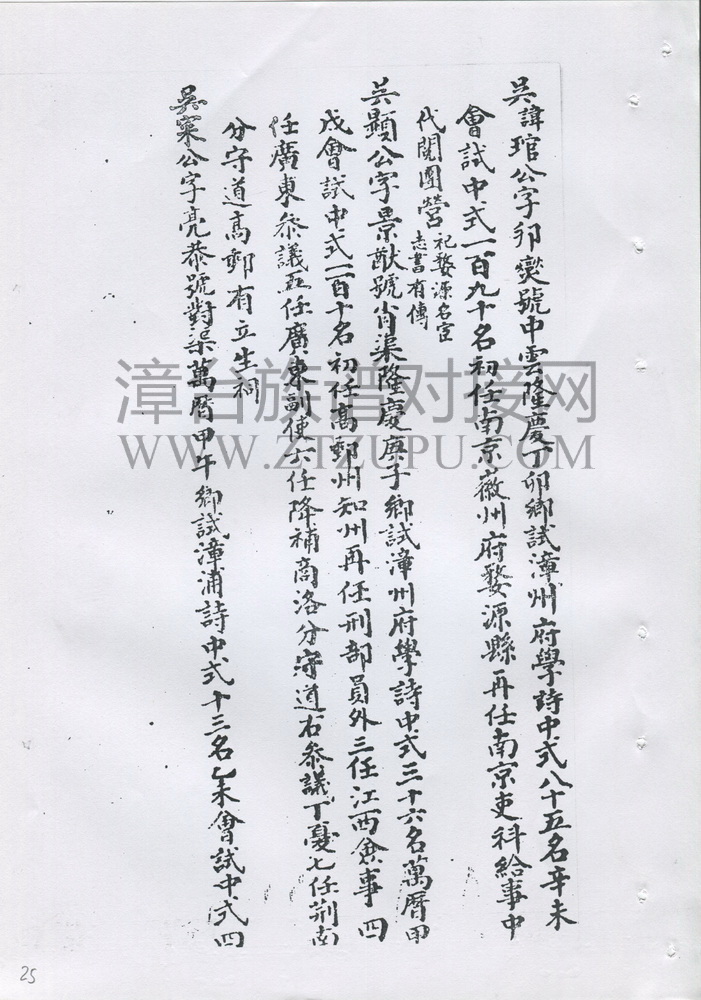 吳諱琯公字邦燮號中雲隆慶丁卯鄉試漳州府學詩中式八十五名辛未
會試中式一百九十名初任南京徽州府婺源縣再任南京吏科給事中
代閱團營祀婺源名宦
志書有傳
吳顯公字景猷號肖渠隆慶庚子鄉試漳州府學詩中式三十六名萬曆甲
戌會試中式一百十名初任高郵州知州再任刑部員外三任江西僉事四
任廣東參議五任廣東副使六任降補商洛分守道右參議丁憂七任荊南
分守道高郵有立生祠
吳寀公字亮恭號對渠萬曆甲午鄉試漳浦詩中式十三名乙未會試中式四
漳台族谱对接网
WWW.ZTZUPU.COM
25